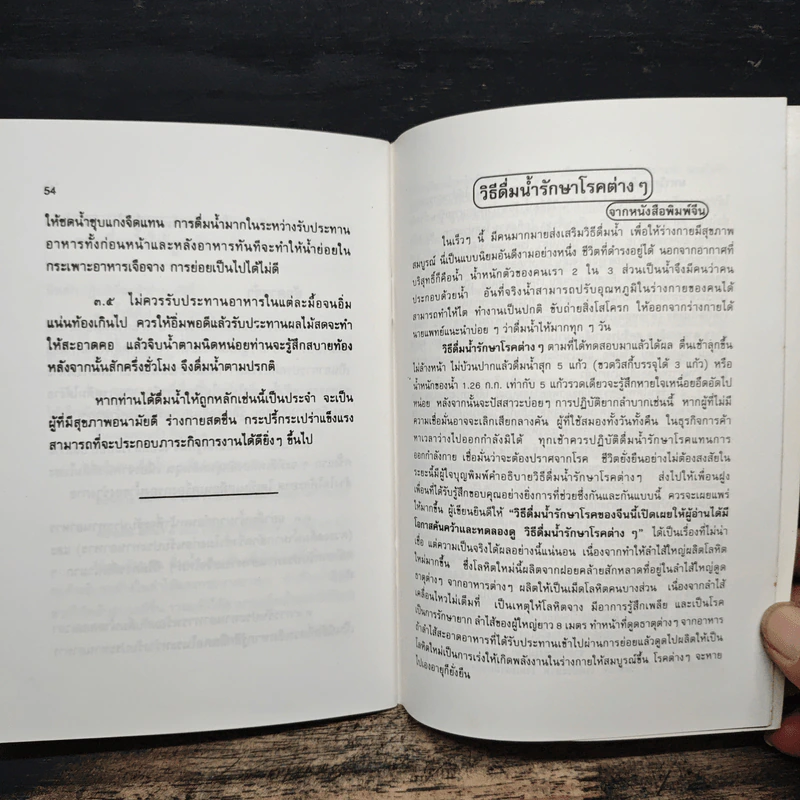 54
ให้ซดน้ำซุบแกงจืดแทน การดื่มน้ำมากในระหว่างรับประทาน
อาหารทั้งก่อนหน้าและหลังอาหารทันทีจะทำให้น้ำย่อยใน
กระเพาะอาหารเจือจาง การย่อยเป็นไปได้ไม่ดี
๓.๕ ไม่ควรรับประทานอาหารในแต่ละมื้อจนอิ่ม
แน่นท้องเกินไป ควรให้อิ่มพอดีแล้วรับประทานผลไม้สดจะทำ
ให้สะอาดคอ แล้วจิบน้ำตามนิดหน่อยท่านจะรู้สึกสบายท้อง
หลังจากนั้นสักครึ่งชั่วโมง จึงดื่มน้ำตามปรกติ
หากท่านได้ดื่มน้ำให้ถูกหลักเช่นนี้เป็นประจำ จะเป็น
ผู้ที่มีสุขภาพอนามัยดี ร่างกายสดชื่น กระปรี้กระเปร่าแข็งแรง
สามารถที่จะประกอบภาระกิจการงานได้ดียิ่งๆ ขึ้นไป
วิธีดื่มน้ำรักษาโรคต่าง ๆ
จากหนังสือพิมพ์จีน
ในเร็วๆ นี้ มีคนมากมายส่งเสริมวิธีดื่มน้ำ เพื่อให้ร่างกายมีสุขภาพ
สมบูรณ์ นี่เป็นแบบนิยมอันดีงามอย่างหนึ่ง ชีวิตที่ดำรงอยู่ได้ นอกจากอากาศที่
บริสุทธิ์ก็คือน้ำ น้ำหนักตัวของคนเรา 2 ใน 3 ส่วนเป็นน้ำจึงมีคนว่าคน
ประกอบด้วยน้ำ อันที่จริงน้ำสามารถปรับอุณหภูมิในร่างกายของคนได้
สามารถทำให้ไต ทำงานเป็นปกติ ขับถ่ายสิ่งโสโครก ให้ออกจากร่างกายได้
นายแพทย์แนะนำบ่อย ๆ ว่าดื่มน้ำให้มากทุก ๆ วัน
วิธีดื่มน้ำรักษาโรคต่างๆ ตามที่ได้ทดสอบมาแล้วได้ผล ตื่นเช้าลุกขึ้น
ไม่ล้างหน้า ไม่บ้วนปากแล้วดื่มน้ำสุก 5 แก้ว (ขวดวิสกี้บรรจุได้ 3 แก้ว) หรือ
น้ำหนักของน้ำ 1.26 ก.ก. เท่ากับ 5 แก้วรวดเดียวจะรู้สึกหายใจเหนื่อยอึดอัดไป
หน่อย หลังจากนั้นจะปัสสาวะบ่อยๆ การปฏิบัติยากลำบากเช่นนี้ หากผู้ที่ไม่มี
ความเชื่อมั่นอาจจะเลิกเสียกลางคัน ผู้ที่ใช้สมองทั้งวันทั้งคืน ในธุรกิจการค้า
หาเวลาว่างไปออกกำลังมิได้ ทุกเช้าควรปฏิบัติดื่มน้ำรักษาโรคแทนการ
ออกกำลังกาย เชื่อมั่นว่าจะต้องปราศจากโรค ชีวิตยั่งยืนอย่างไม่ต้องสงสัยใน
ระยะนี้มีผู้ใจบุญพิมพ์คำอธิบายวิธีดื่มน้ำรักษาโรคต่างๆ ส่งไปให้เพื่อนฝูง
เพื่อนที่ได้รับรู้สึกขอบคุณอย่างยิ่งการที่ช่วยซึ่งกันและกันแบบนี้ ควรจะเผยแพร่
ให้มากขึ้น ผู้เขียนยินดีให้ "วิธีดื่มน้ำรักษาโรคของจีนนี้เปิดเผยให้ผู้อ่านได้มี
โอกาสค้นคว้าและทดลองดู วิธีดื่มน้ำรักษาโรคต่าง ๆ" ได้เป็นเรื่องที่ไม่น่า
เชื่อ แต่ความเป็นจริงได้ผลอย่างนี้แน่นอน เนื่องจากทำให้ลำไส้ใหญ่ผลิตโลหิต
ใหม่มากขึ้น ซึ่งโลหิตใหม่นี้ผลิตจากฝอยคล้ายสักหลาดที่อยู่ในลำไส้ใหญ่ดูด
ธาตุต่างๆ จากอาหารต่างๆ ผลิตให้เป็นเม็ดโลหิตคนบางส่วน เนื่องจากลำไส้
เคลื่อนไหวไม่เต็มที่ เป็นเหตุให้โลหิตจาง มีอาการรู้สึกเพลีย และเป็นโรค
เป็นการรักษายาก ลำไส้ของผู้ใหญ่ยาว 8 เมตร ทำหน้าที่ดูดธาตุต่างๆ จากอาหาร
ถ้าลำไส้สะอาดอาหารที่ได้รับประทานเข้าไปผ่านการย่อยแล้วดูดไปผลิตให้เป็น
โลหิตใหม่เป็นการเร่งให้เกิดพลังงานในร่างกายให้สมบูรณ์ขึ้น โรคต่างๆ จะหาย
ไปเองอายุก็ยั่งยืน